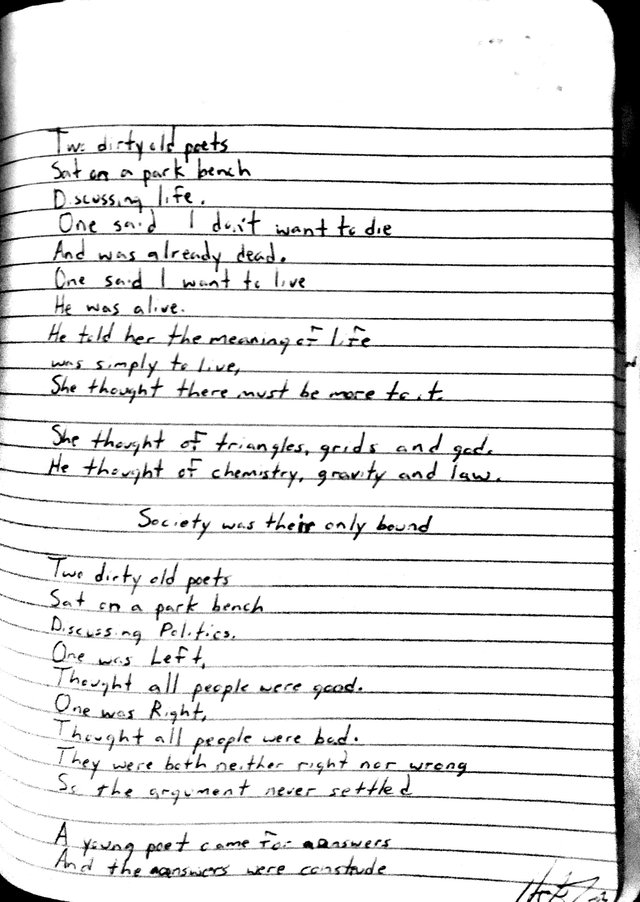 Two dirty old poets
Sat on a park bench
Discussing life.
One said I don't want to die
And was already dead.
One said I want to live
He was alive.
He told her the meaning of life
was simply to live,
She thought there must be more to it.
She thought of triangles, grids and god.
He thought of chemistry, gravity and law.
Society was their only bound
Two dirty old poets
Sat on a park bench
Discussing Politics.
One was Left,
Thought all people were good.
One was Right,
Thought all people were bad.
They were both neither right nor wrong
So the argument never settled
A young poet came for answers
And the answers were constude